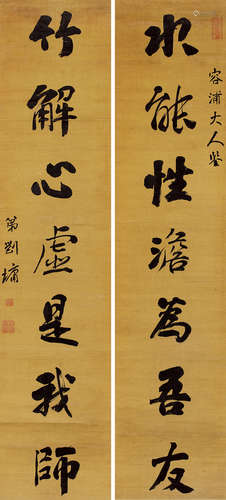 容浦大人鉴
水能性澹為吾友
竹解心虛是我師
弟劉墉